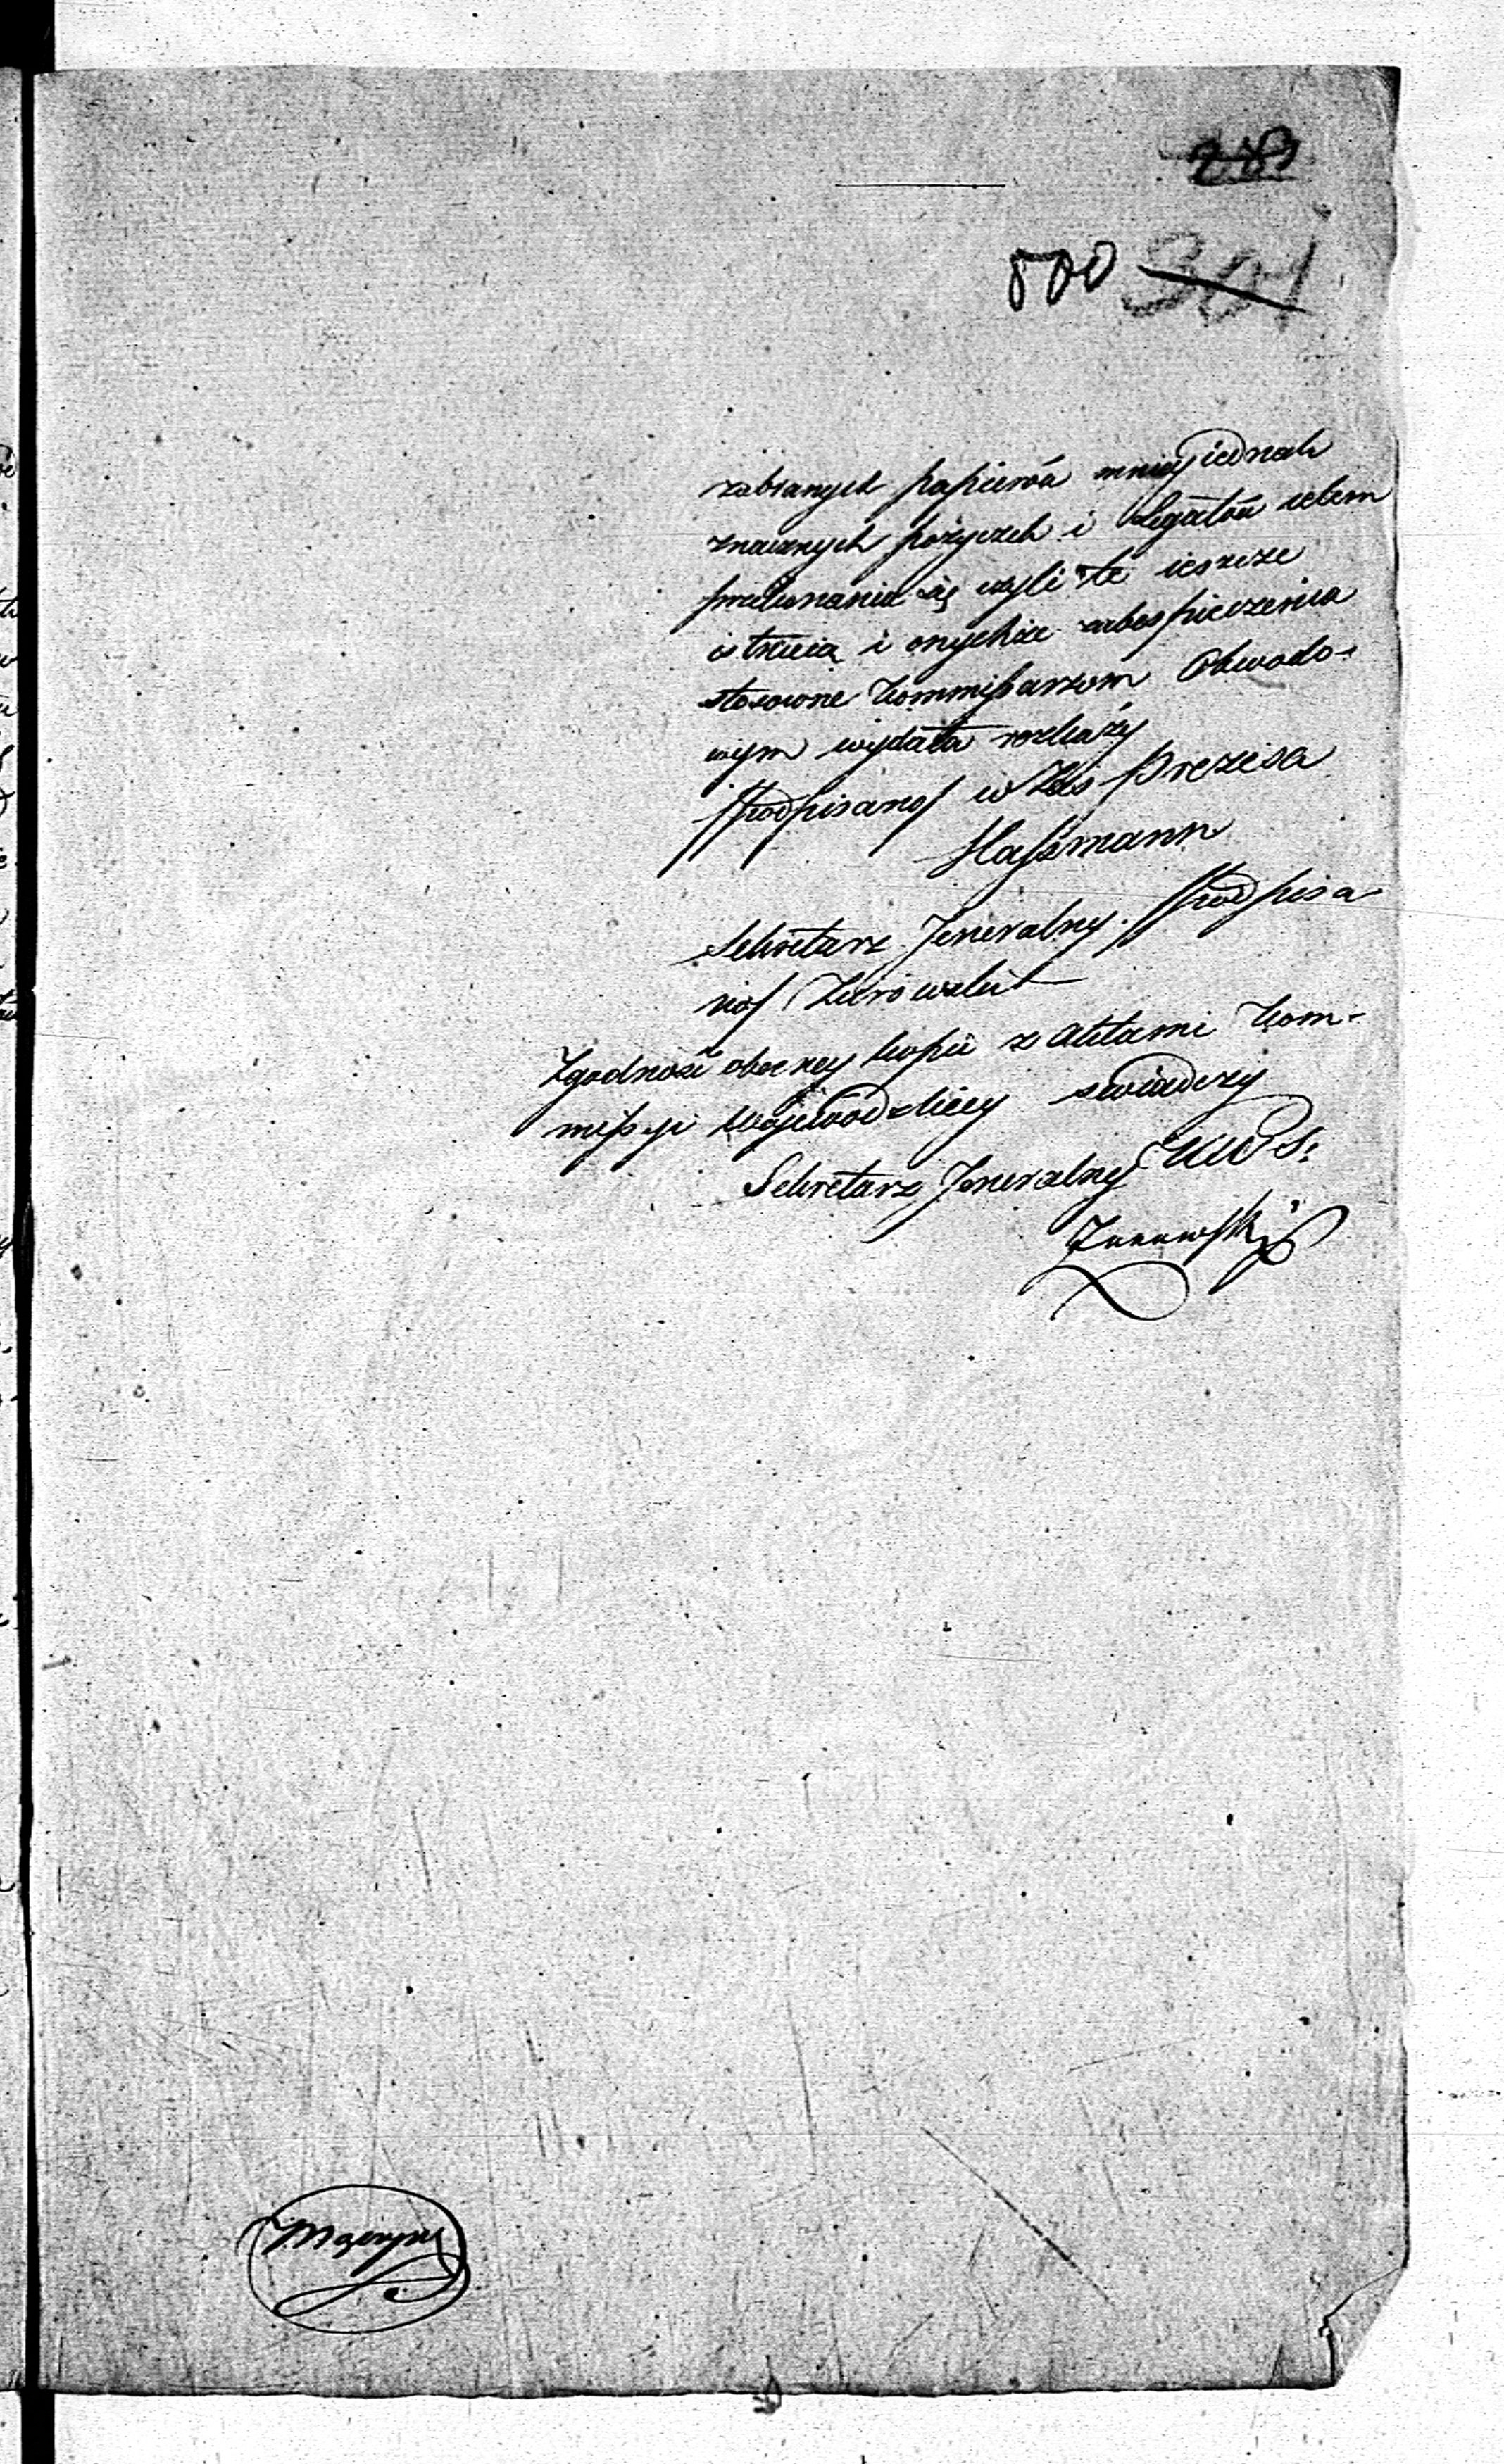 283
500 301
zabranych papierów mniey iednak
znacznych pożyczek i Legatów celem
przekonania się czyli te ieszcze
istnieią i onychże zabespieczenia
stosowne Kommißarzom Obwodo-
wym wydała rozkazy
/podpisano/ w Zas Prezesa
Haßmann
Sekretarz Jeneralny. /podpisa
no/ Żurowski
Zgodność obecney kopii z Aktami Kom-
mißyi Wojewodzkiey swiadczy
Sekretarz Jeneralny KWS.